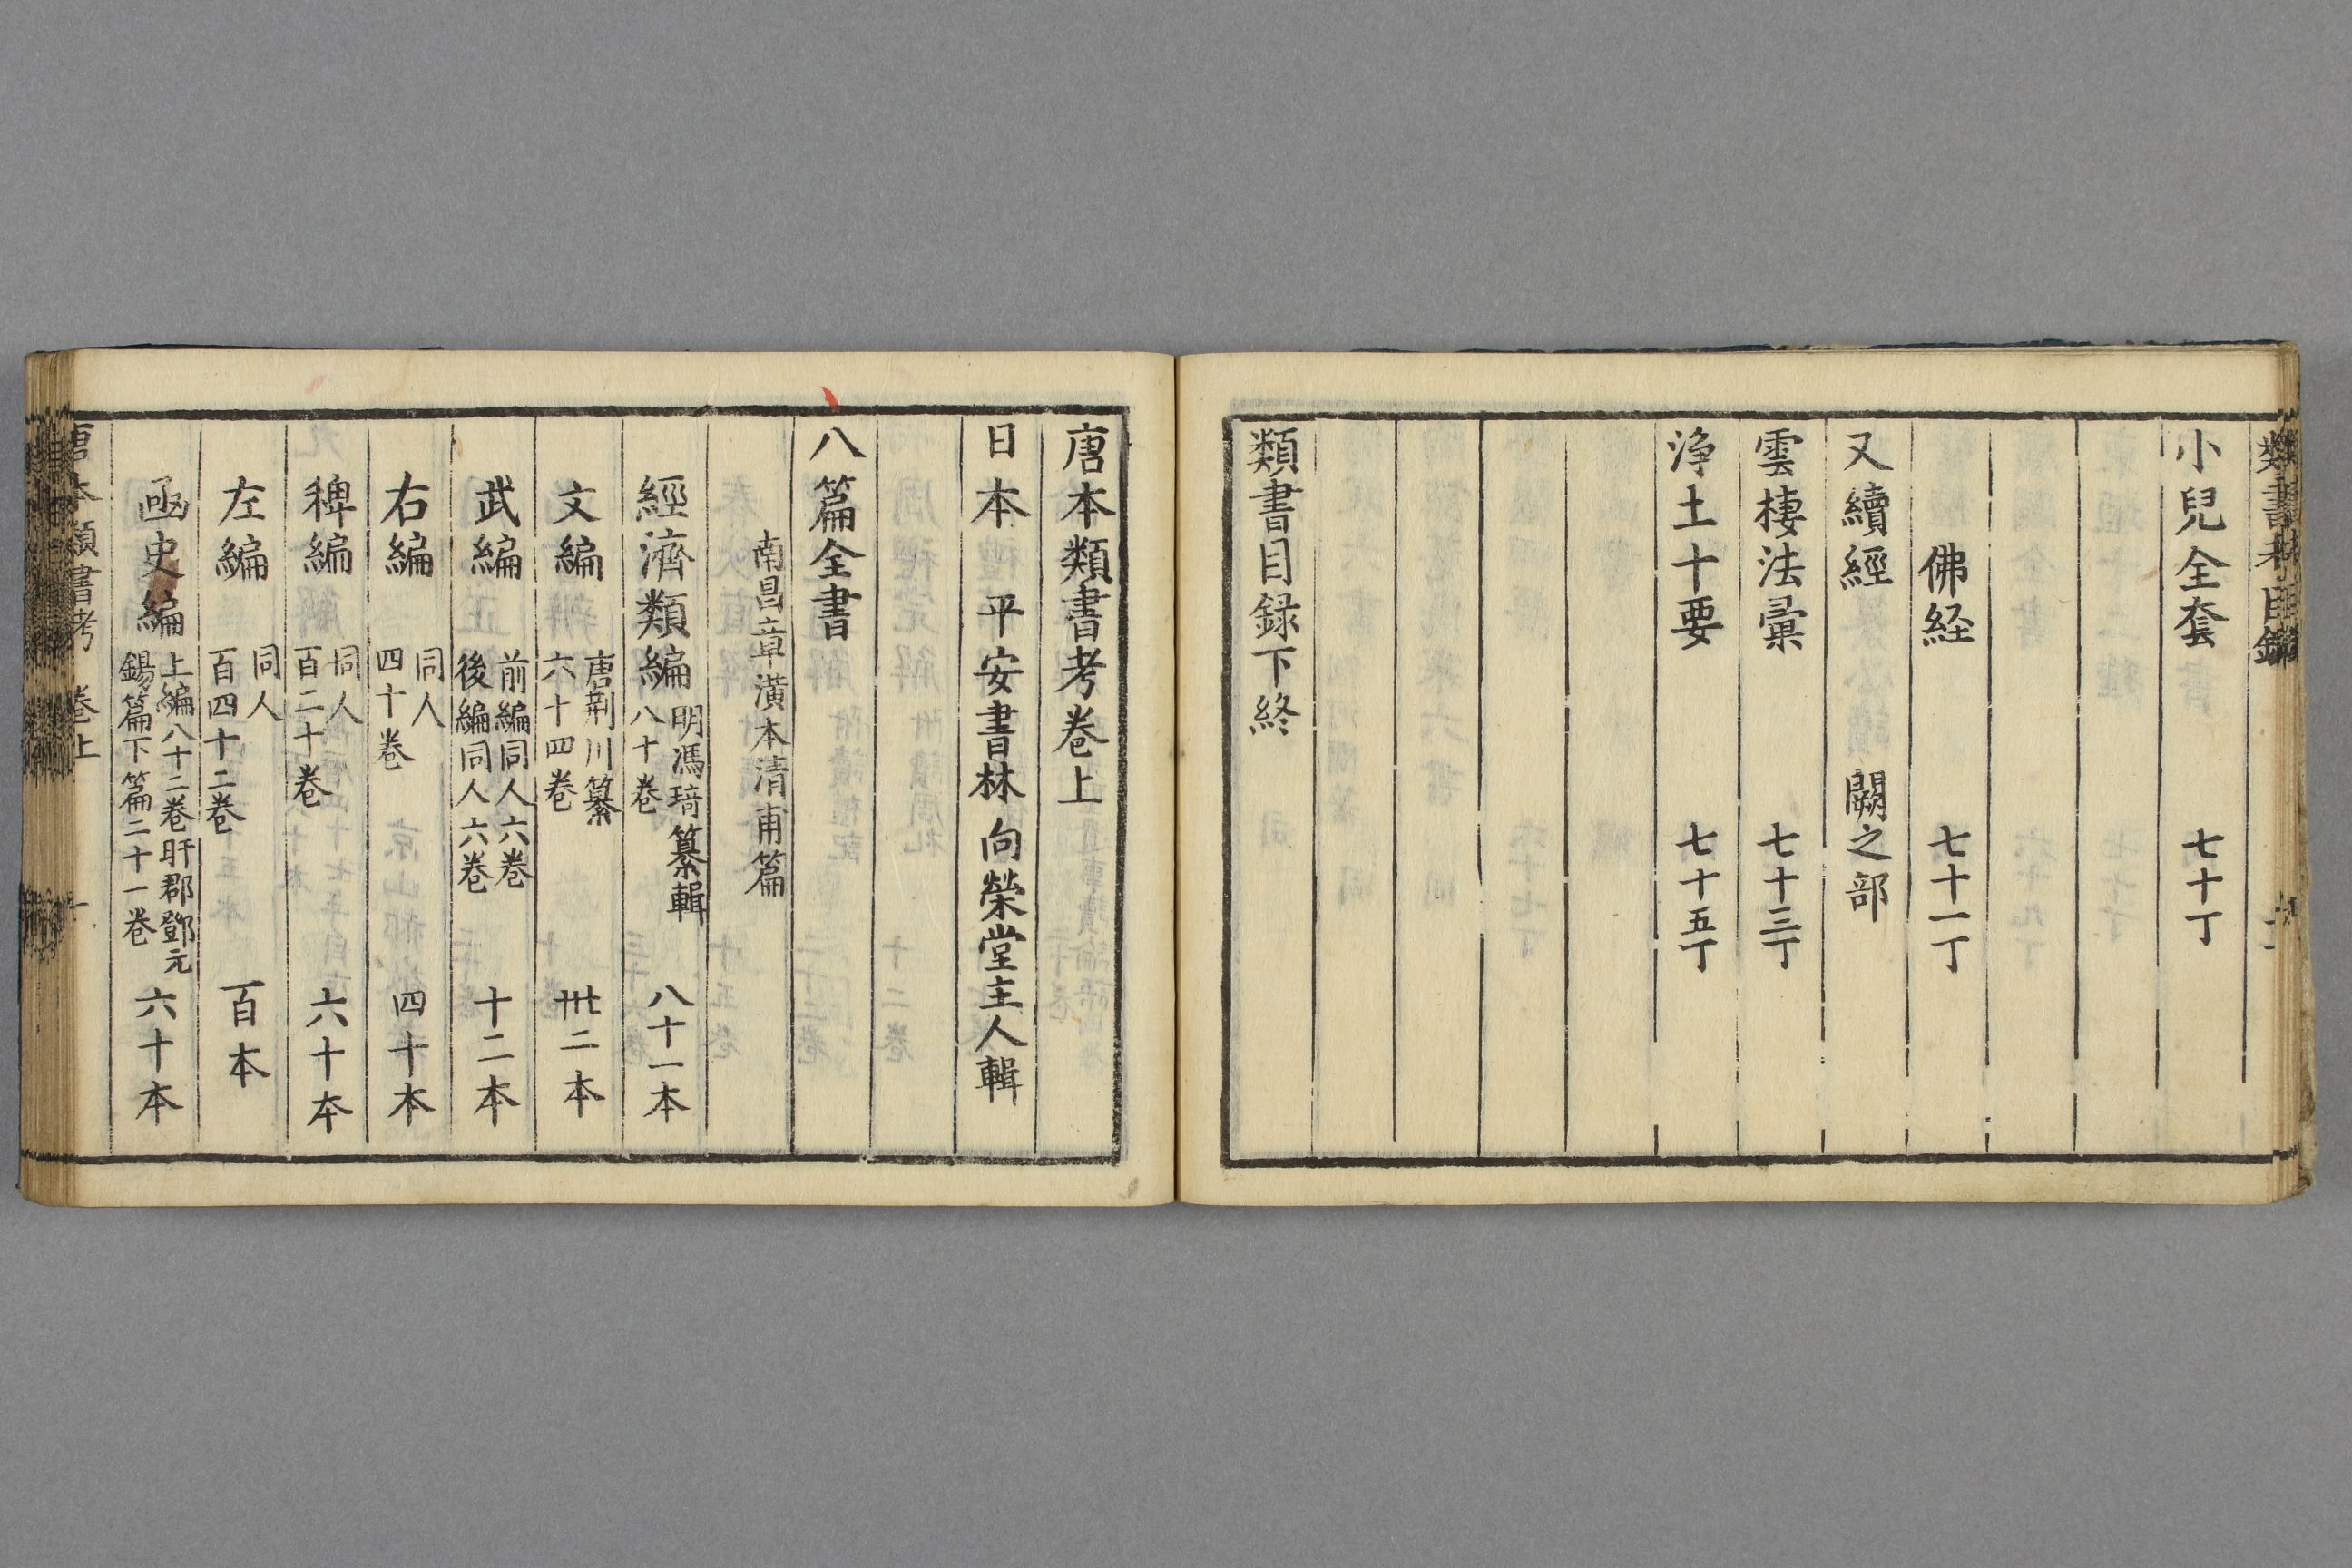 小兒全套 七十丁
佛経 七十一丁
又續經 闕之部
雲棲法彙 七十三丁
淨土十要 七十五丁
類書目録下終
唐本類書考卷上
日本 平安書林 向榮堂主人輯
八篇全書
南昌章潢本清甫篇
經濟類編 明馮琦纂輯
八十卷 八十一本
文編 唐荊川纂
六十四卷 卅二本
武編 前編同人六卷
後編同人六卷 十二本
右編 同人
四十卷 四十本
稗編 同人
百二十卷 六十本
左編 同人
百四十二卷 百本
函史編 上編八十二卷盱郡鄧元
錫篇下篇二十一卷 六十本
唐本類書考 卷上 一